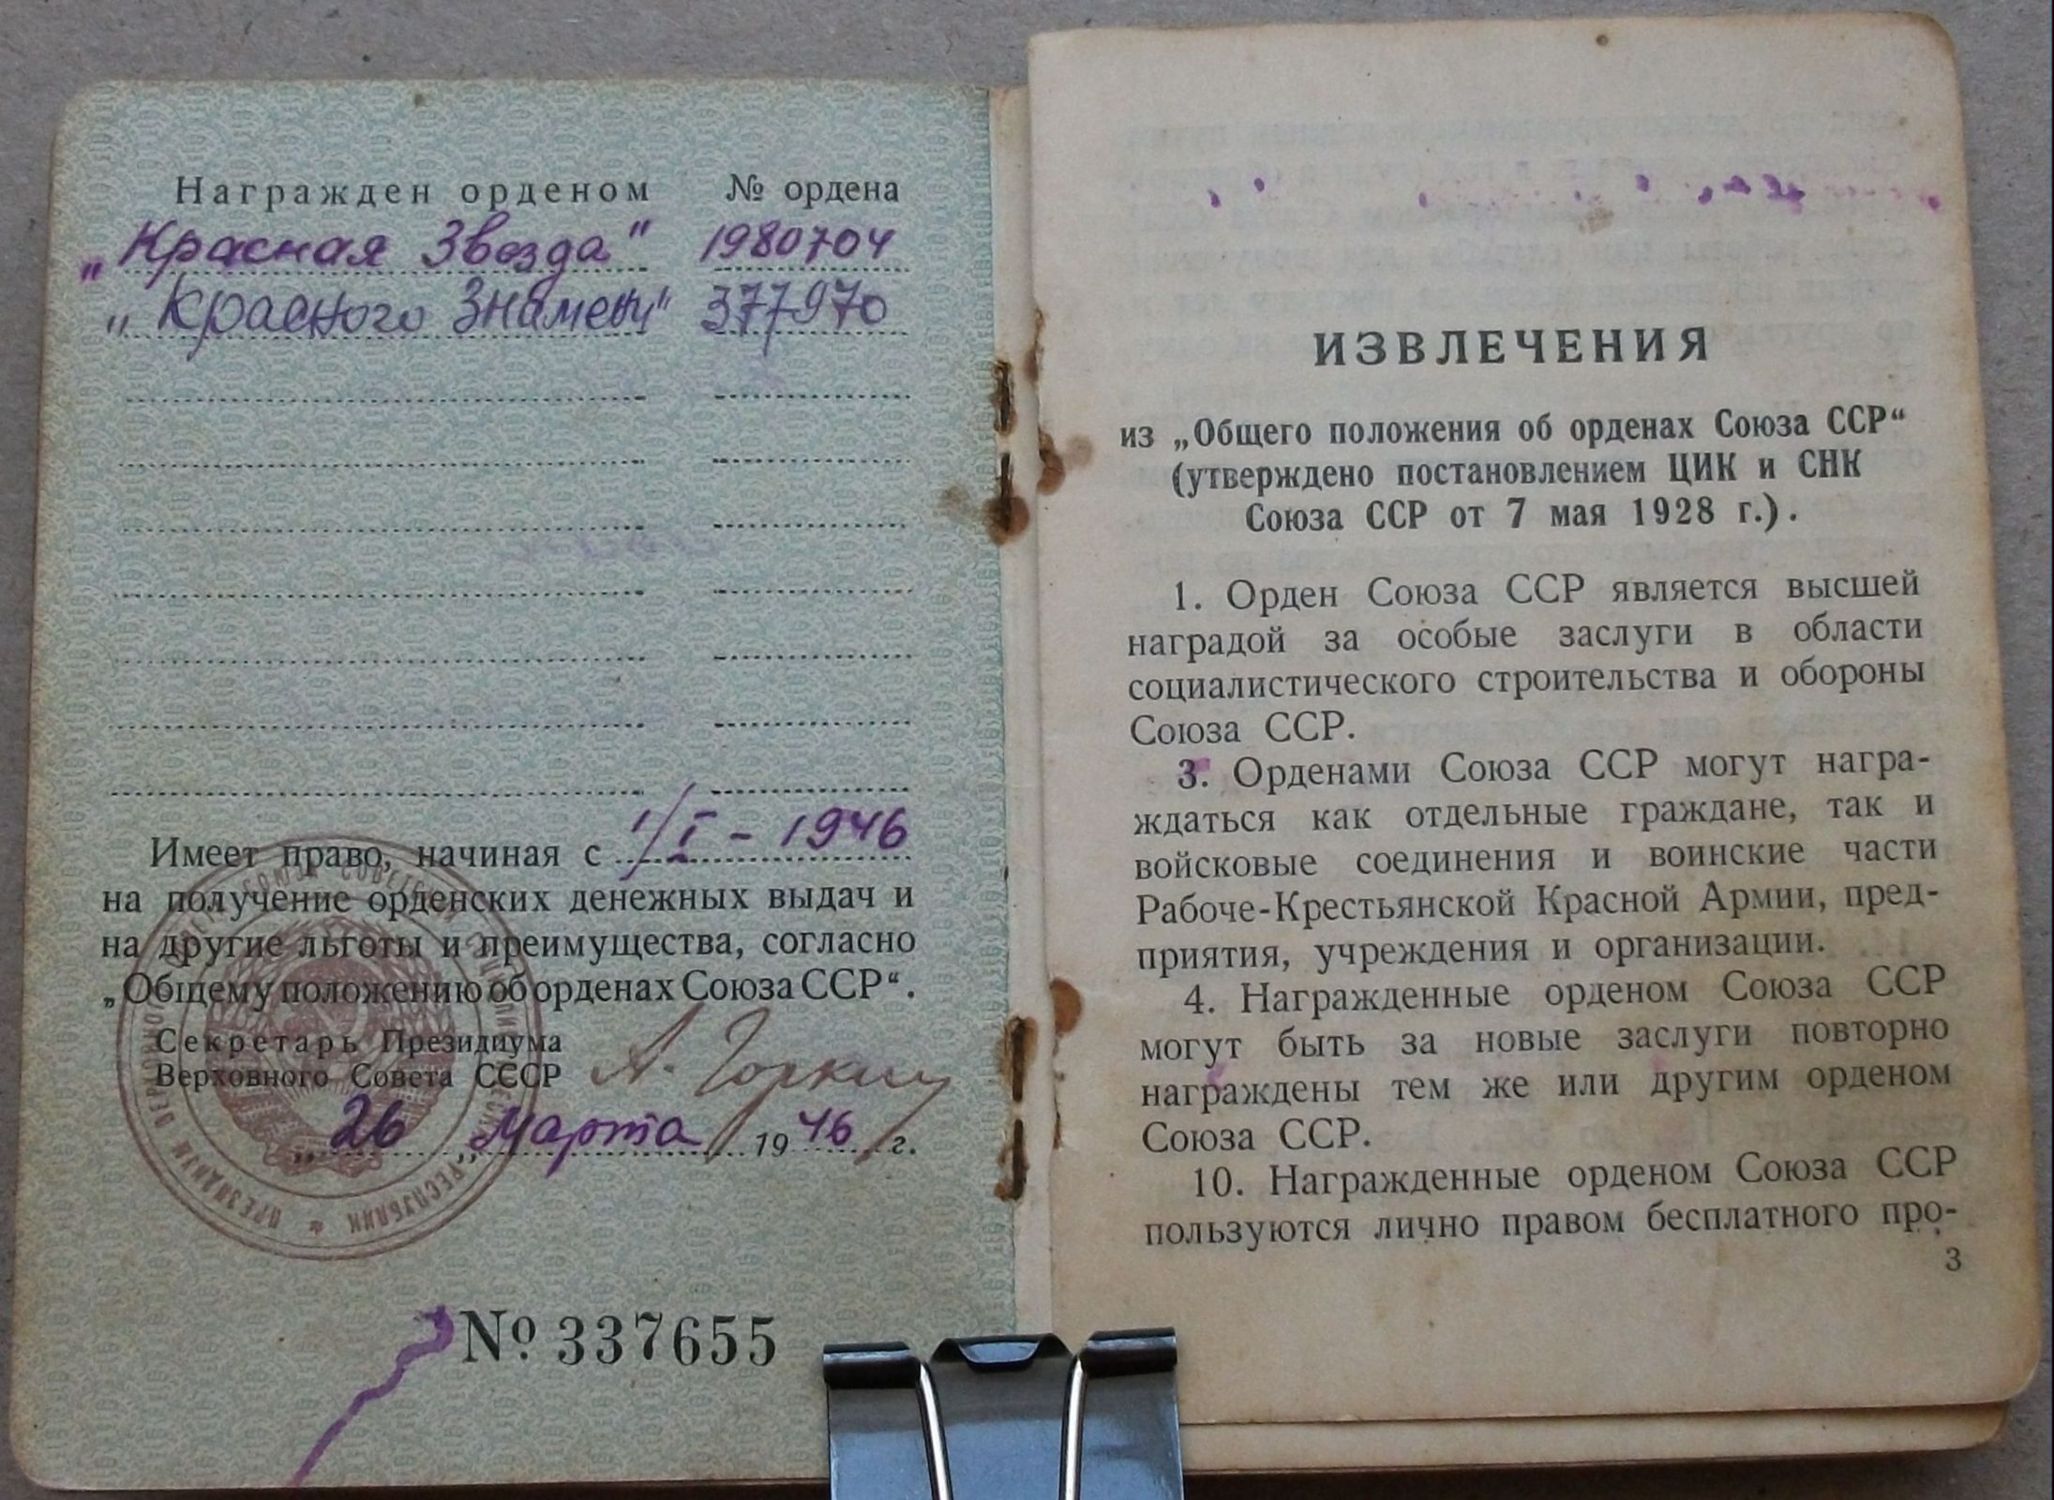 Награжден орденом № ордена
„Красная Звезда" 1980704
„Красного Знамени" 377970
Имеет право, начиная с 1/I - 1946
на получение орденских денежных выдач и
на другие льготы и преимущества, согласно
„Общему положению об орденах Союза ССР“.
Секретарь Президиума
Верховного Совета СССР А. Горкин
„26„ марта 1946 г.
№ 337655
ИЗВЛЕЧЕНИЯ
из „Общего положения об орденах Союза ССР“
(утверждено постановлением ЦИК и СНК
Союза ССР от 7 мая 1928 г.).
1. Орден Союза ССР является высшей
наградой за особые заслуги в области
социалистического строительства и обороны
Союза ССР.
3. Орденами Союза ССР могут награ-
ждаться как отдельные граждане, так и
войсковые соединения и воинские части
Рабоче-Крестьянской Красной Армии, пред-
приятия, учреждения и организации.
4. Награжденные орденом Союза ССР
могут быть за новые заслуги повторно
награждены тем же или другим орденом
Союза ССР.
10. Награжденные орденом Союза ССР
пользуются лично правом бесплатного про-
3